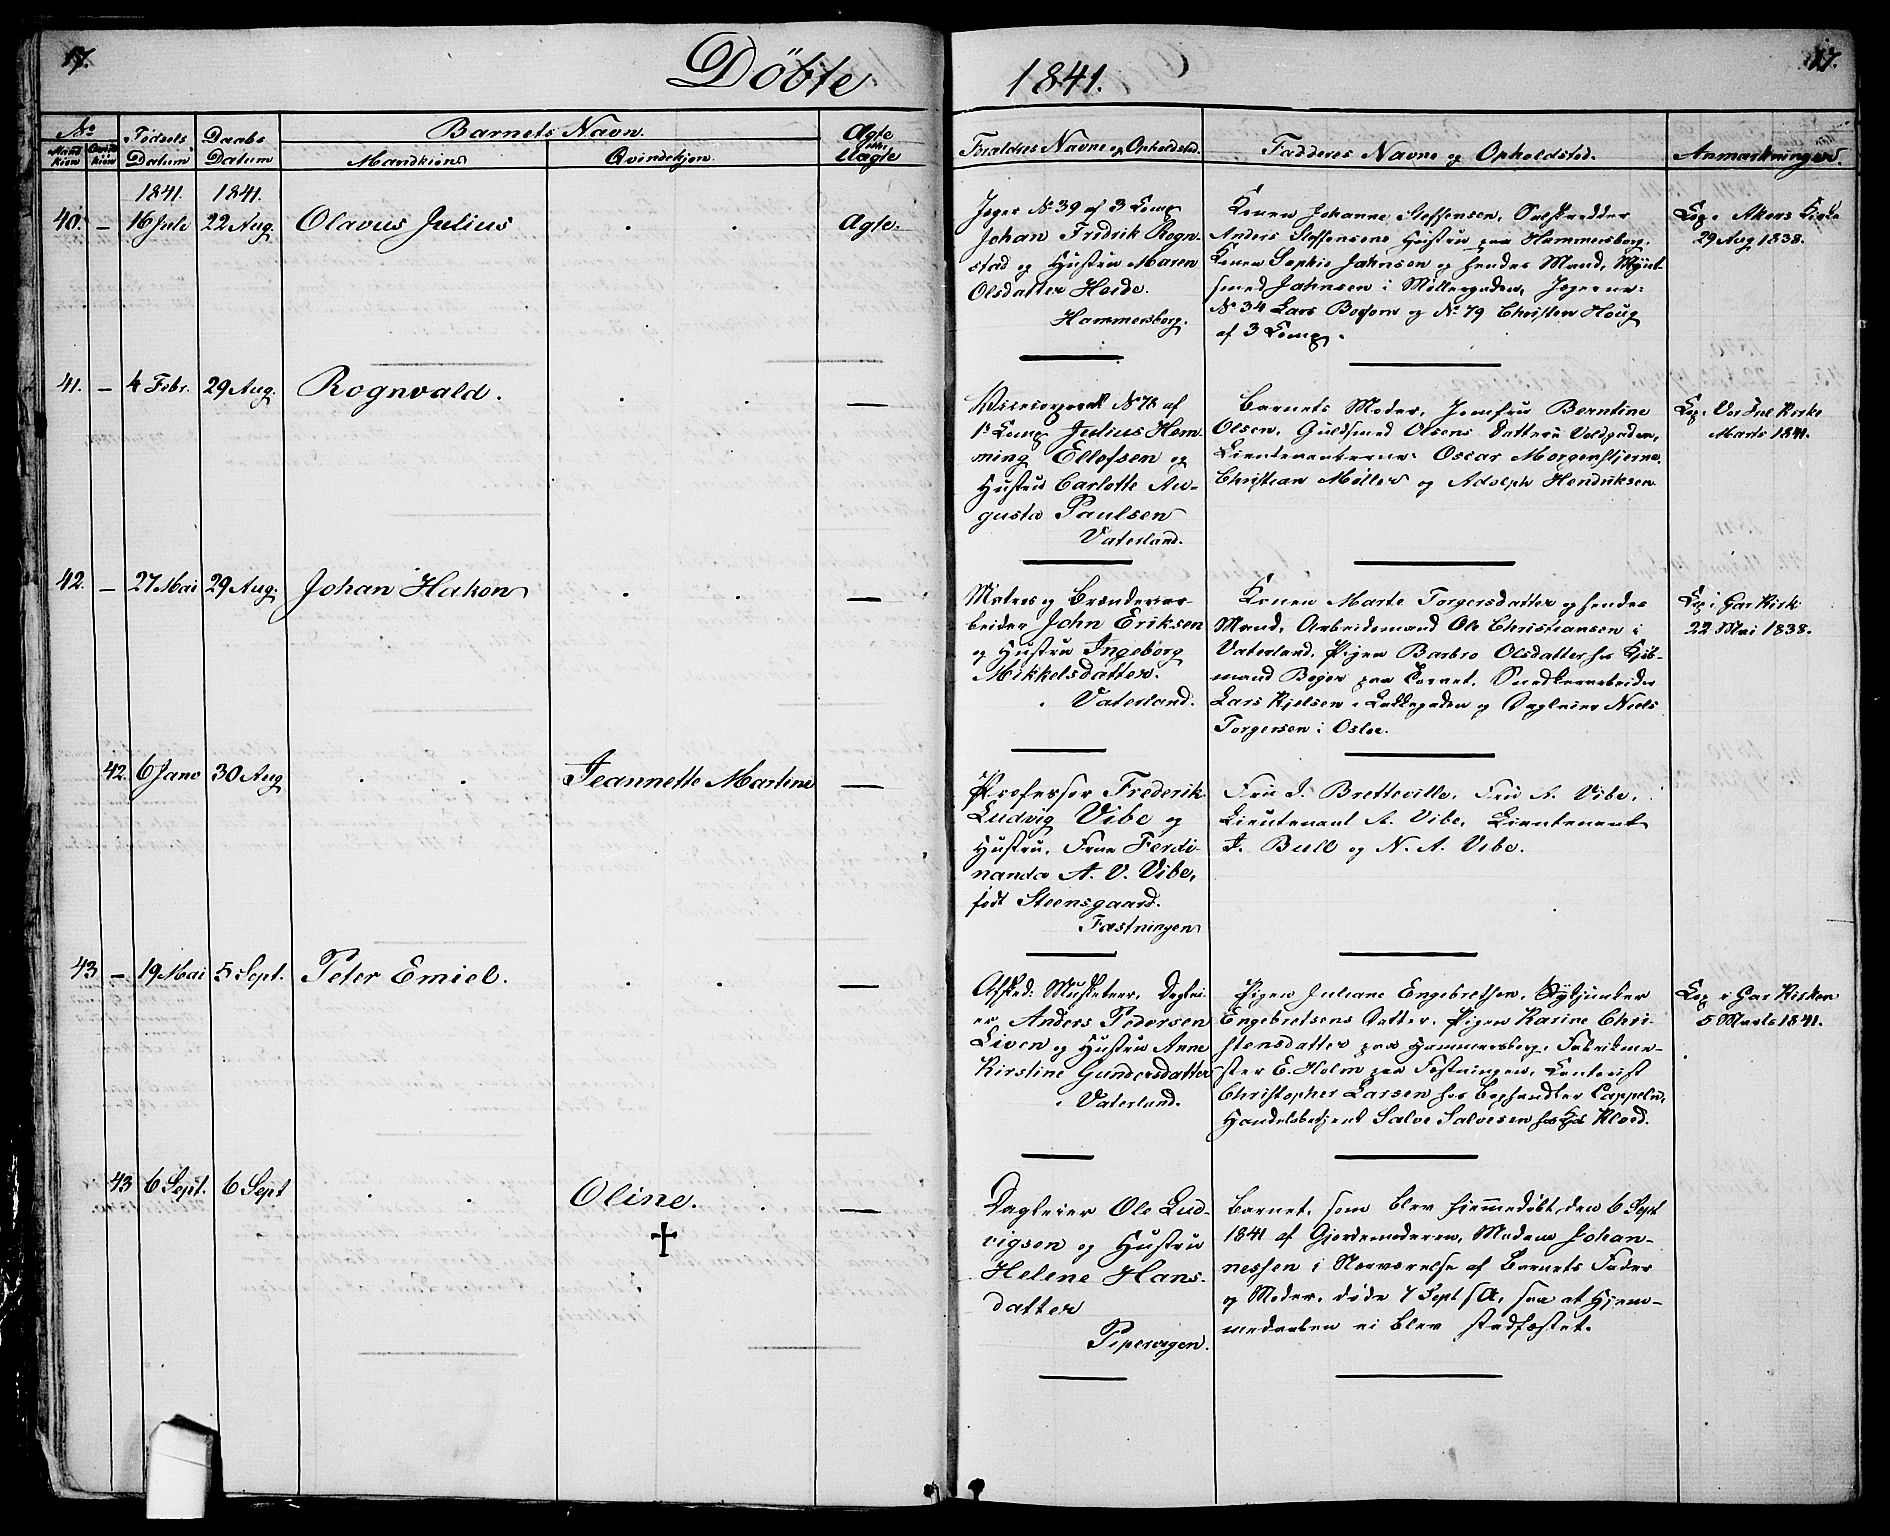 17.
Döbte
1841.
17.
No
Mand kiön
Qvin kiön
Födsels Datum
Daabs Datum
Barnets Navn.
Mandkiön
Qvindekjön.
Ægte eller Uægte
Foraldres Navne og Opholdsted.
Fadderes Navne og Opholdsted.
Anmærkninger.
1841. 1841.
40. – 16 Juli 22 Aug. Olavus Julius Ægte.
Jæger No 39 af 3 Comp
Johan Fredrik Rogn-
stad og Hustru Maren
Olsdatter Heide.
Hammersborg.
Konen Johanne Steffensen,
Anders Steffensens Hustru paa Hammersborg.
Konen Sophie Jahnsen og hendes Mand, Mynt-
smed Jahnsen i Möllergaden, Jægerne:
No 34 Lars og No 79 Christen Houg
af 3 Comp.
Cop. i Akers Kirke
29 Aug 1838.
41. – 4 Febr. 29 Aug. Rognvald. —
No 78 af
1s Comp Julius Hem-
ming Ellefsen og
Hustru Carlotte Au-
gusta Paulsen
Vaterland.
Barnets Moder, Jomfru Berntine
Olsen, Guldsmed Olsens Datter Voldgaden,
Lieutenanterne Oscar Morgenstjerne,
Christian Möller og Adolph Hendriksen
Cop. i Vor Frel Kirke
Marts 1841.
42. – 27 Mai 29 Aug. Johan Hakon —
Matros og Brænderiar-
beider John Eriksen
og Hustru Ingeborg
Mikkelsdatter.
Vaterland.
Konen Marte Torgersdatter og hendes
Mand, Arbeidsmand Ole Christiansen i
Vaterland, Pigen Barbro Olsdatter hos Kjöb-
mand paa Torvet, Snedkerarbeider
Lars Kjelsen i Lakkegaden og Dagleier Niels
Torgersen i Osloe.
Cop i Gar Kirk
22 Mai 1838.
42. 6 Janv 30 Aug Jeannette Martine —
Professor Frederik
Ludvig Vibe og
Hustru, Frue Ferdi-
nanda A. V. Vibe,
födt Steensgaard.
Fæstningen
Fru J. Bretteville, Fru A. Vibe,
Lieutenant A. Vibe, Lieutenant
J. Bull og N. A. Vibe.
43 – 19 Mai 5 Sept. Peter Emiel. —
Afsked: Musketeer, Daglei-
er Anders Pedersen
Liven og Hustru Anne
Kirstine Gundersdatter
Vaterland.
Pigen Juliane Engebretsen, Stykjunker
Engebretsens Datter, Pigen Karine Chri-
stensdatter paa Hammersborg, Fabrikme-
ster E. Holm paa Fæstningen, Contorist
Christopher Larsen hos Boghandler Cappelen,
Handelsbetjent Salve Salvesen hos Kjöb Kloed.
Cop i Gar Kirken
5 Marts 1841.
43 6 Sept. 6 Sept Oline. —
✝
Dagleier Ole Lud-
vigsen og Hustru
Helene Hans-
datter
Pipervigen.
Barnet, som blev hjemmedöbt den 6 Sept
1841 af Gjordemoderen, Madam Johan-
nessen i Nærværelse af Barnets Fader
og Moder, döde 7 Sept s A, saa at Hjem-
medaaben ei blev stadfæstet.